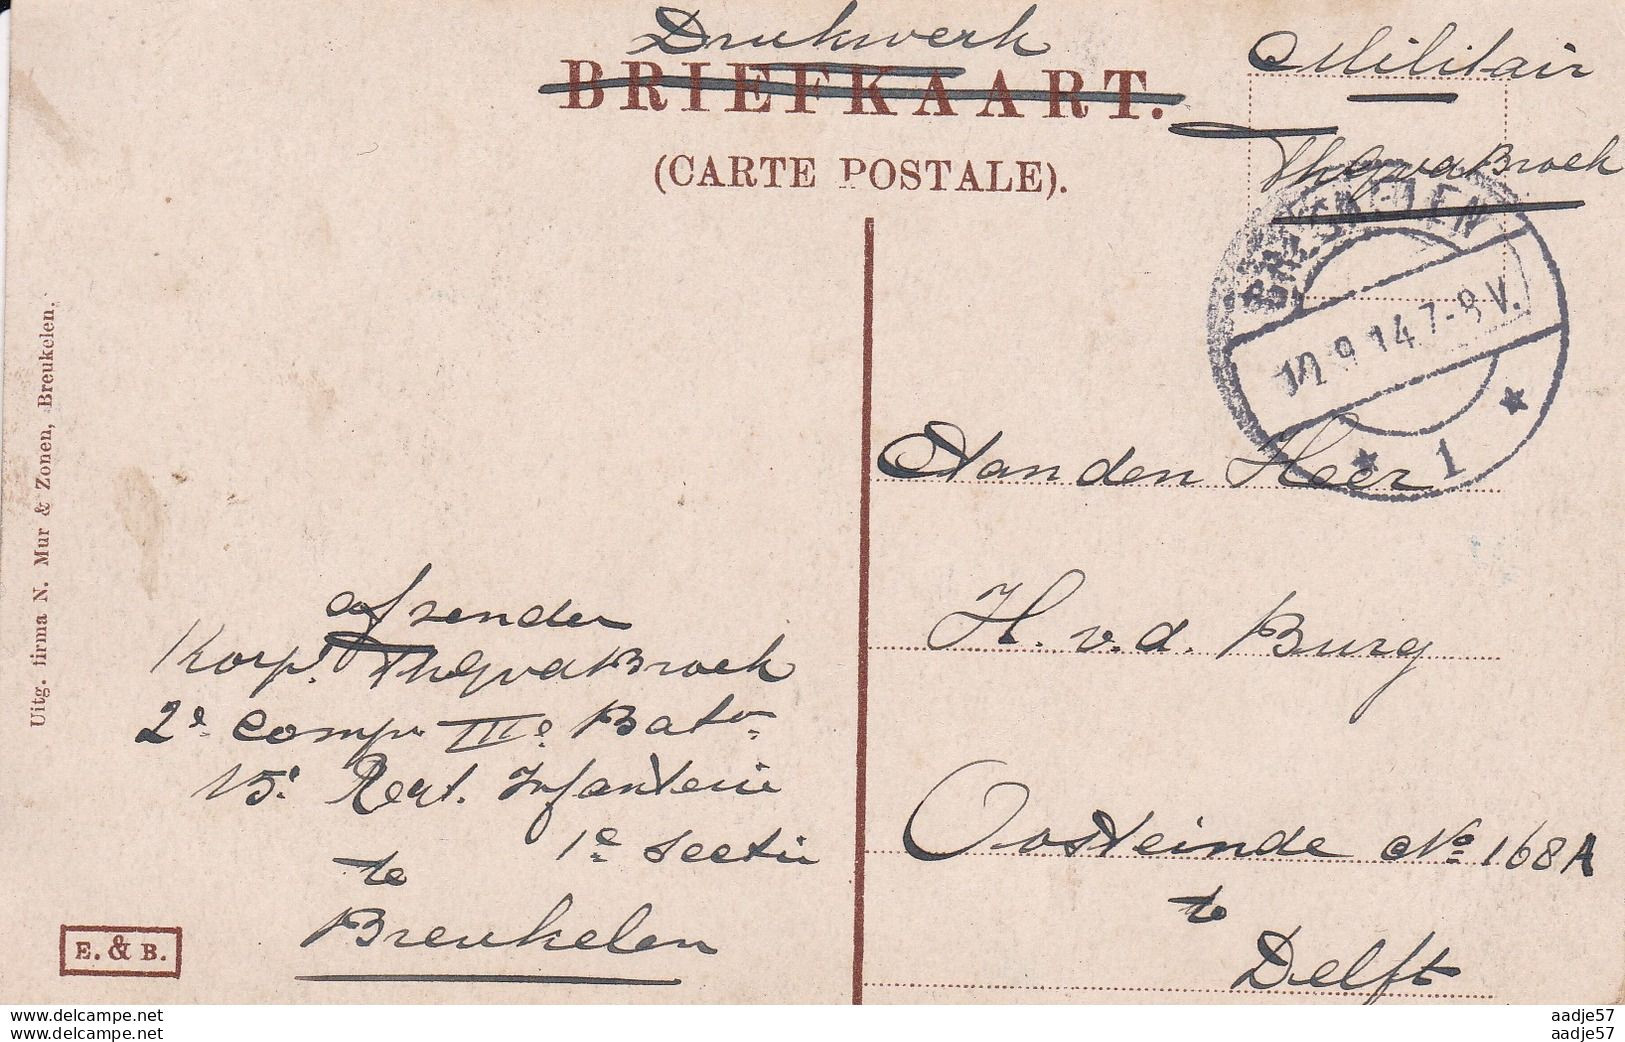 Drukwerk
BRIEFKAART.
(CARTE POSTALE).
Militair
ThGvdBroek
BREUKELEN
9.14 7-8 V.
1
Uitg. firma N. Mur & Zonen, Breukelen.
afzender
Korp. ThGvdBroek
2e Comp. IIIe Bat.
15e Regt. Infanterie
1e Sectie
te
Breukelen
E. & B.
Aan den Heer
H. v. d. Burg
Oosteinde No 168A
te
Delft
www.delcampe.net
www.delcampe.net
aadje57
aadje57